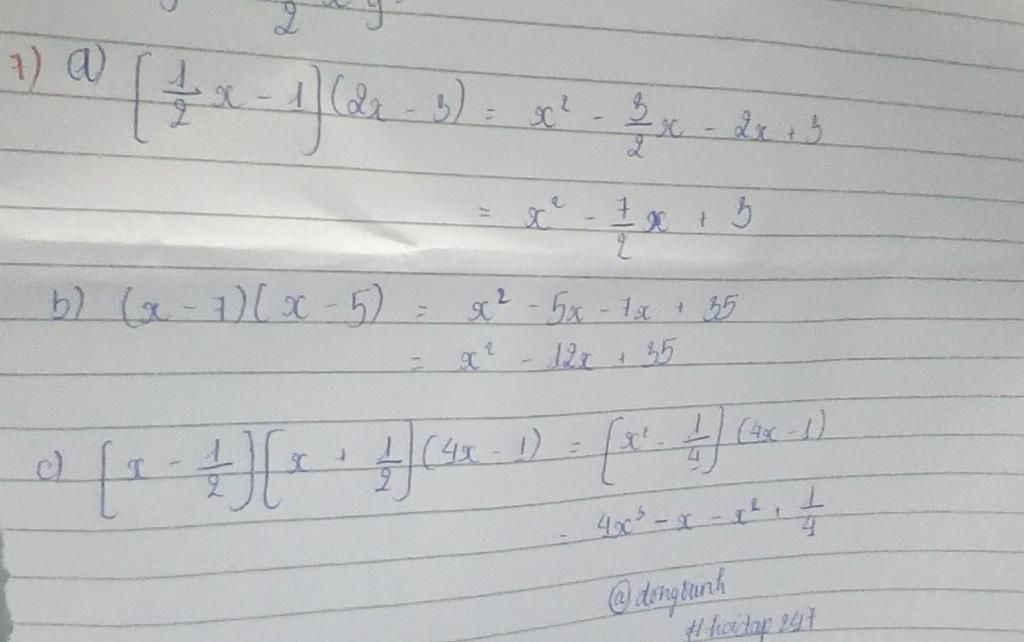 2
7) a) [1/2 x - 1](2x - 3) = x² - 3/2 x - 2x + 3
= x² - 7/2 x + 3
b) (x - 7)(x - 5) = x² - 5x - 7x + 35
= x² - 12x + 35
c) [x - 1/2][x + 1/2](4x - 1) = [x² - 1/4](4x - 1)
= 4x³ - x - x² + 1/4
@dongbanh
#hoidap247